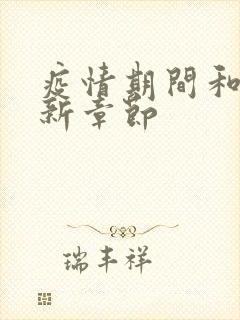 疫情期間和
新章節
瑞丰祥